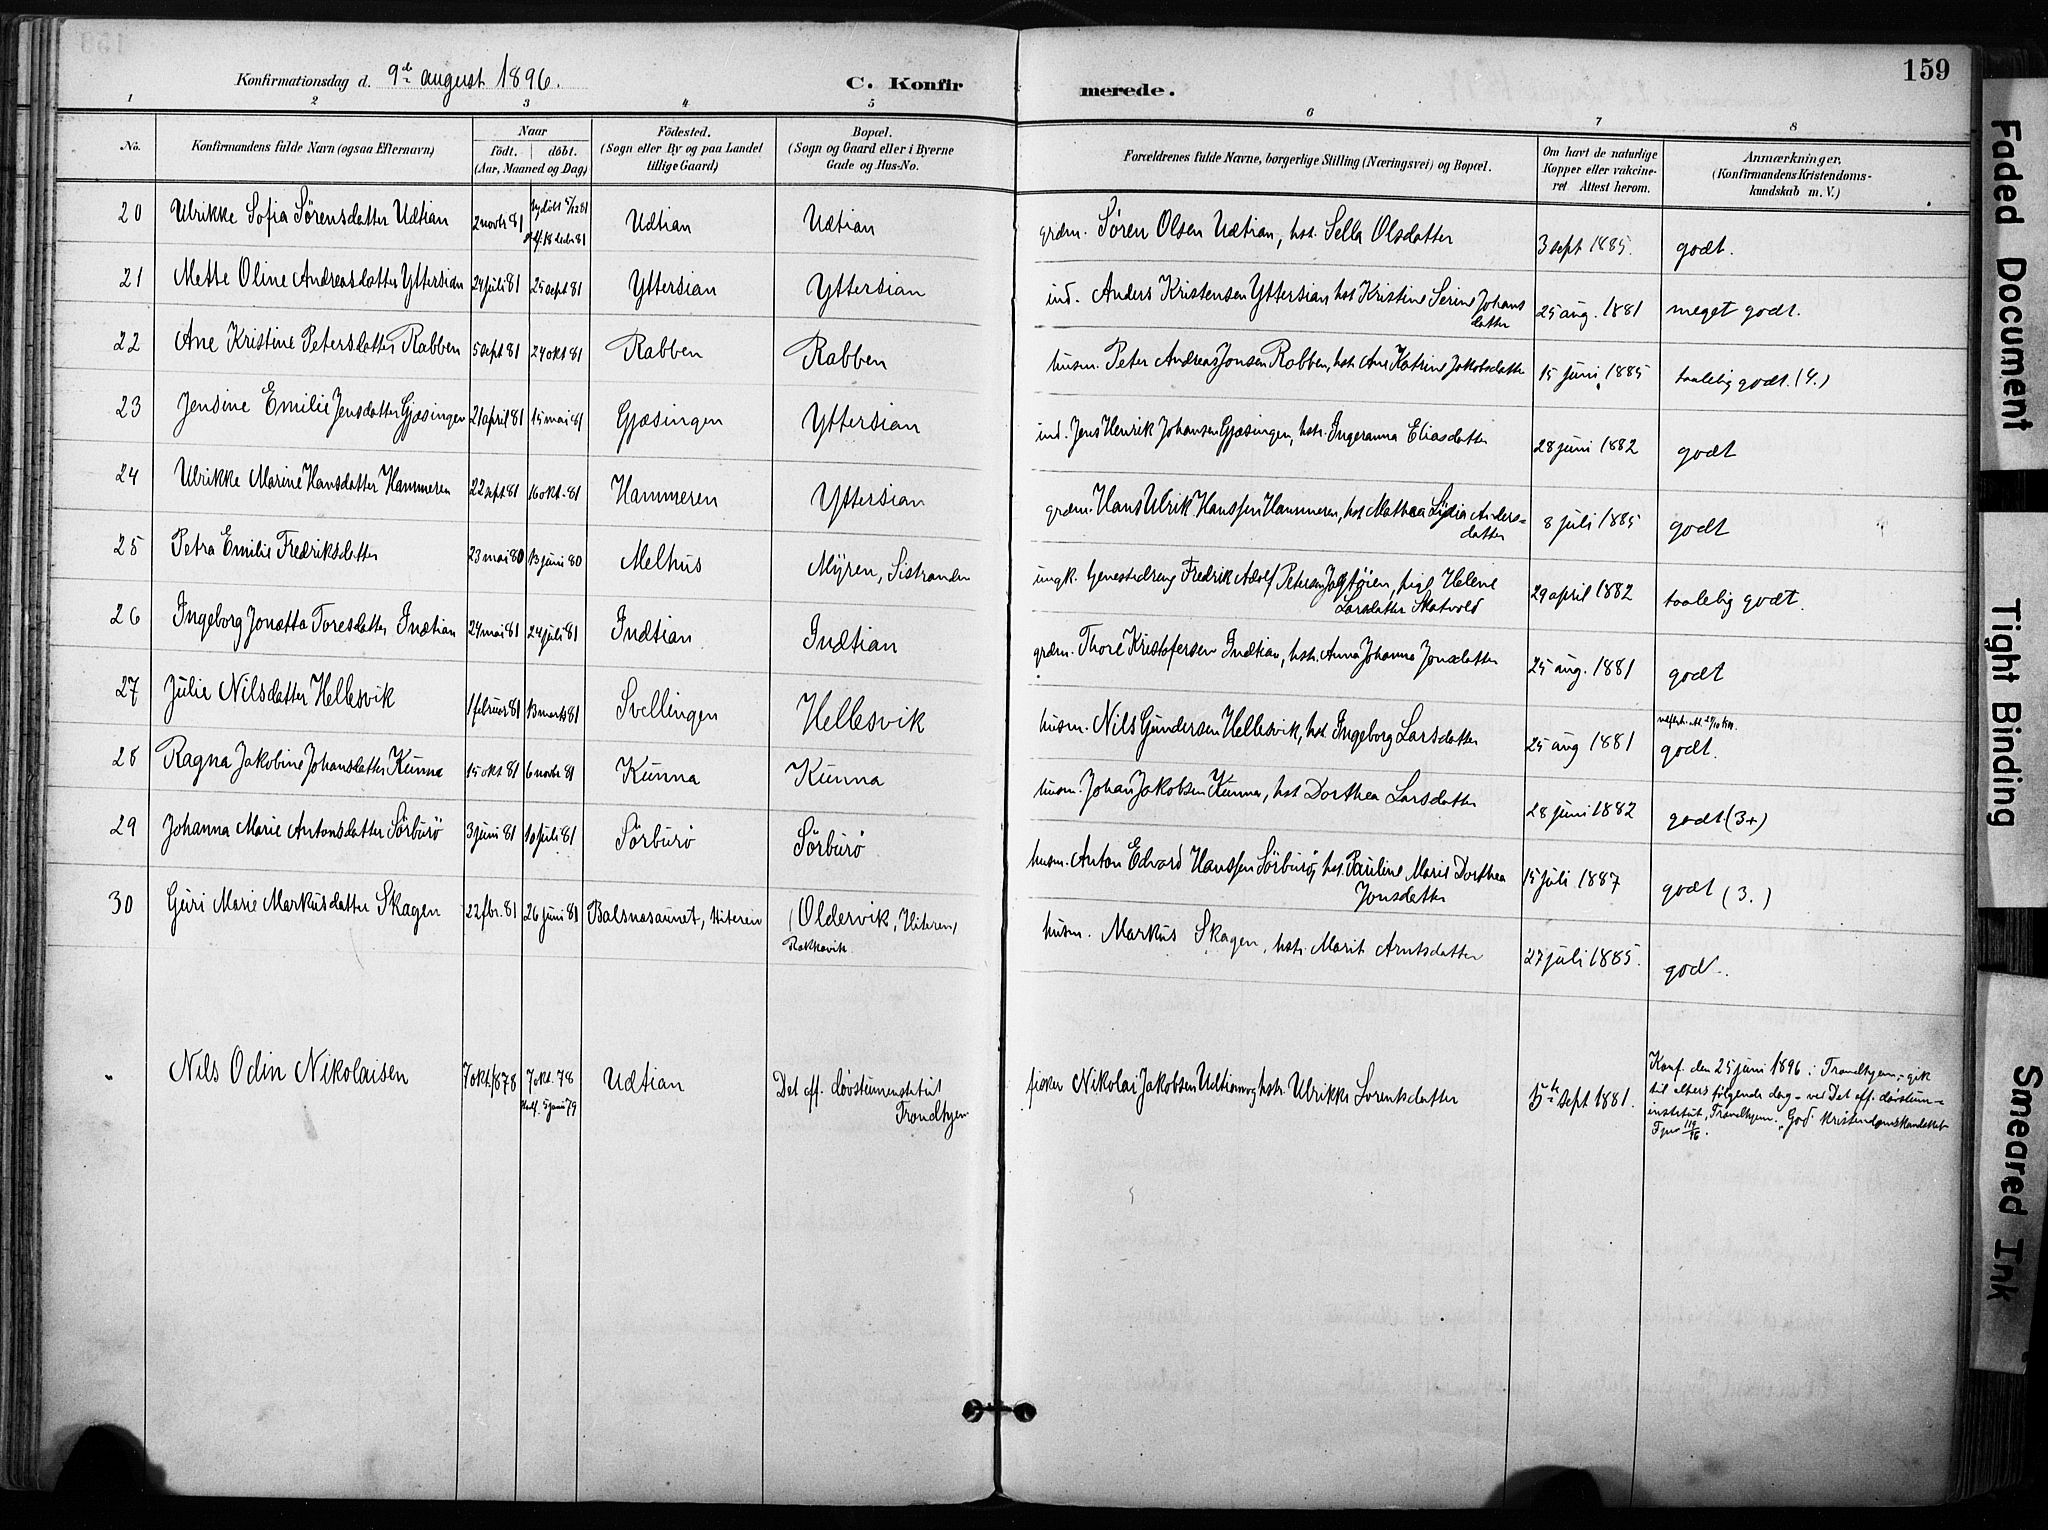 159
Konfirmationsdag d. 9de august 1896.
C. Konfirmerede.
1 2 3 4 5 6 7 8
No.
Konfirmandens fulde Navn (ogsaa Efternavn)
Naar
födt. döbt.
(Aar, Maaned og Dag)
Födested.
(Sogn eller By og paa Landet
tillige Gaard)
Bopæl.
(Sogn og Gaard eller i Byerne
Gade og Hus-No.
Forældrenes fulde Navne, borgerlige Stilling (Næringsvei) og Bopæl.
Om havt de naturlige
Kopper eller vakcine-
ret Attest herom.
Anmærkninger.
(Konfirmandens Kristendoms-
kundskab m. V.)
20 Ulrikke Sofia Sörensdatter Udtian 2 novbr 81 hjdöbt 5/12 81 18 decbr 81 Udtian Udtian grdm. Sören Olsen Udtian, hst. Sella Olsdatter 3 sept 1885. godt.
21 Mette Oline Andreasdatter Yttersian 24 juli 81 25 sept 81 Yttersian Yttersian ind. Anders Kristensen Yttersian hst Kristine Serine Johans
datter 25 aug. 1881 meget godt.
22 Ane Kristine Petersdatter Rabben 5 sept 81 24 okt 81 Rabben Rabben husm. Peter Andreas Jonsen Rabben, hst. Ane Katrine Jakobsdatter 15 juni 1885 taalelig godt. (4.)
23 Jensine Emilie Jensdatter Gjæsingen 21 april 81 15 mai 81 Gjæsingen Yttersian ind. Jens Henrik Johansen Gjæsingen, hst. Ingeranna Eliasdatter 28 juni 1882 godt
24 Ulrikke Marine Hansdatter Hammeren 22 sept 81 16 okt. 81 Hammeren Yttersian grdm. Hans Ulrik Hanssen Hammeren, hst Mathea Lydia Anders-
datter 8 juli 1885 godt
25 Petra Emilie Fredriksdatter 23 mai 80 13 juni 80 Melhus Myren, Sistranden ungk. tjenestedreng Fredrik Adolf Petersen, pige Helene
Larsdatter Skatvold 29 april 1882 taalelig godt.
26 Ingeborg Jonetta Toresdatter Indtian 24 mai 81 24 juli 81 Indtian Indtian grdm. Thore Kristofersen Indtian, hst. Anna Johanna Jonsdatter 25 aug. 1881 godt
27 Julie Nilsdatter Hellesvik 1 februar 81 13 marts 81 Svellingen Hellesvik husm. Nils Gundersen Hellesvik, hst Ingeborg Larsdatter 25 aug 1881 godt.
28 Ragna Jakobine Johansdatter Kunna 15 okt 81 6 novbr 81 Kunna Kunna husm. Johan Jakobsen Kunna, hst Dorthea Larsdatter 28 juni 1882 godt (3+)
29 Johanna Marie Antonsdatter Sörburö 3 juni 81 10 juli 81 Sörburö Sörburö husm. Anton Edvard Hanssen Sörburö, hst. Pauline Marie Dorthea
Jonsdatter 15 juli 1887 godt (3.)
30 Guri Marie Markusdatter Skagen 22 fbr. 81 26 juni 81 Balsnesaunet, Hiteren (Oldervik, Hiteren)
Rakkavik husm. Markus Skagen, hst. Marit Arntsdatter 27 juli 1885. god.
" Nils Odin Nikolaisen 7 okt. 1878 7 okt. 78
Stadf. 5 juni 79 Udtian Det off. døvstumeinstitut
Trondhjem fisker Nikolai Jakobsen Udtian og hst. Ulrikke Lorentsdatter 5te sept 1881. Konf. den 25 juni 1896 i Trondhjem, gik
til alters følgende dag - ved Det off. døvstum-
institut, Trondhjem. "God kristendomskundskab"
119/96.
Faded Document
Tight Binding
Smeared Ink